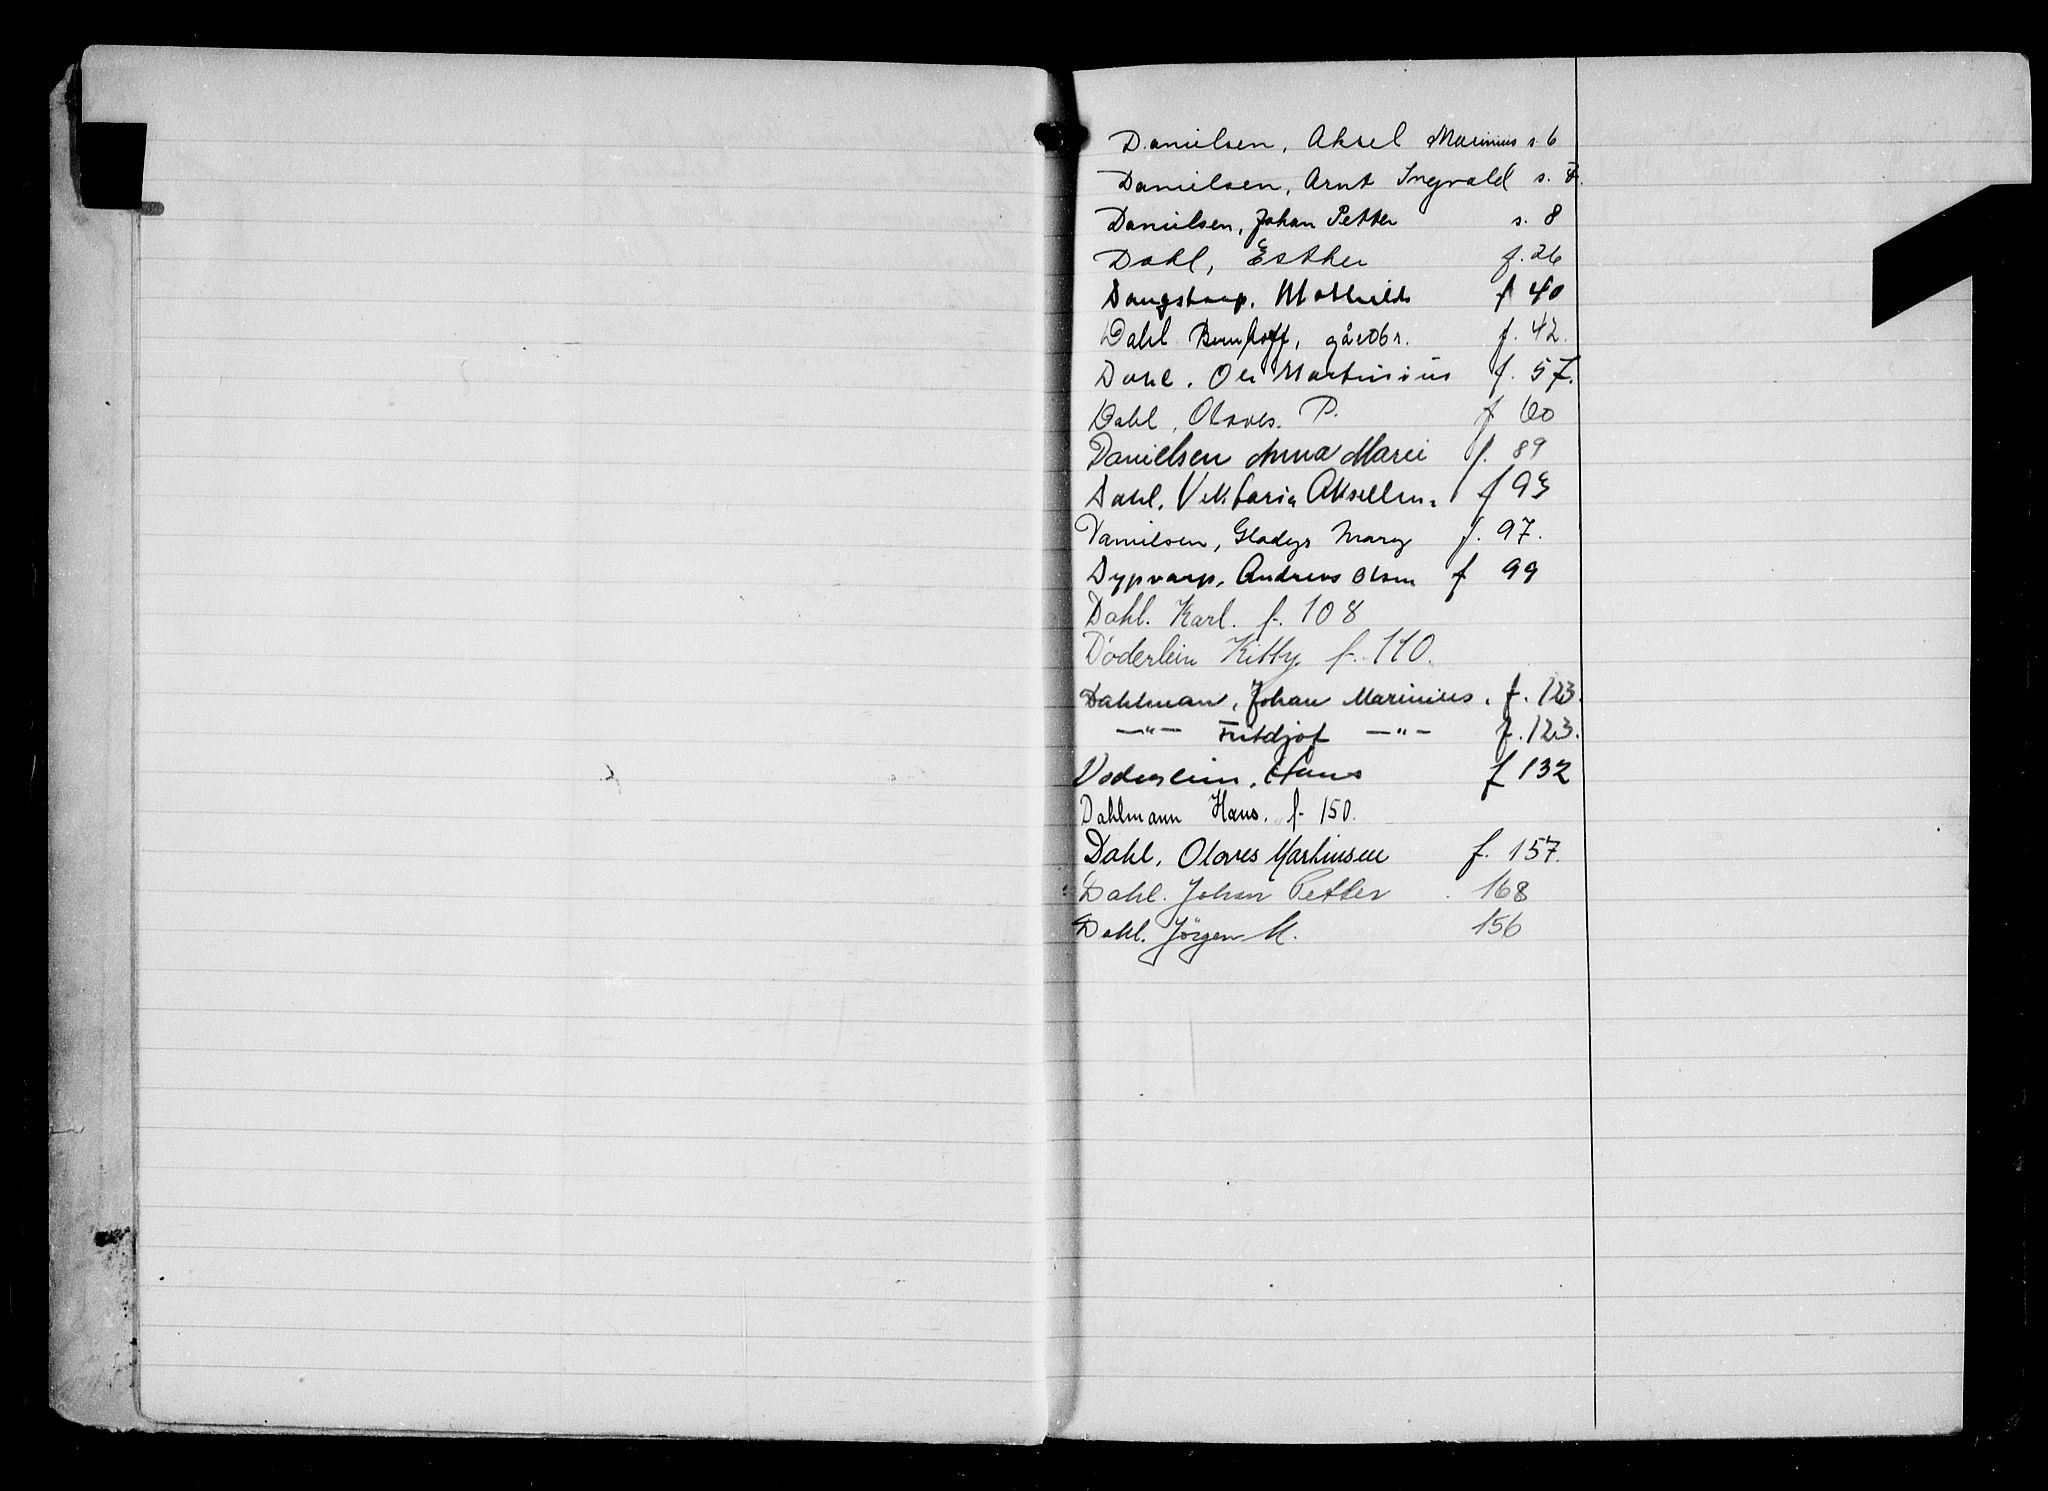 Danielsen, Aksel Marinius s. 6
Danielsen, Arnt Ingvald s. 7.
Danielsen, Johan Petter s. 8
Dahl, Esther f. 26
Mathilde f 40
Dahl Bernhoff, gårdbr. f. 42.
Dahl. Ole Martinius f. 57.
Dahl, Olaves. P. f 60
Danielsen Anna Marie f. 89
Dahl. Viktoria Akseline f 93
Danielsen, Gladys Mary f. 97.
Dypvarp, Andreas Olsen f 99
Dahl. Karl. f. 108
Döderlein Kitty f. 110.
Dahlman, Johan Marinius. f. 123.
—"— Fritdjof —"— f. 123.
Doderlein, Hans f 132
Dahlmann Hans. f. 150.
Dahl, Olaves Martinsen f. 157.
Dahl. Johan Petter 168
Dahl. Jörgen M. 156